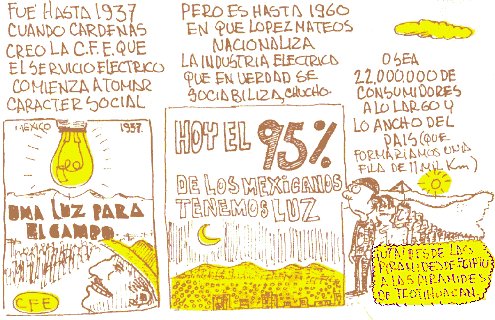 FUÉ HASTA 1937
CUANDO CARDENAS
CREO LA C.F.E. QUE
EL SERVICIO ELECTRICO
COMIENZA A TOMAR
CARACTER SOCIAL
PERO ES HASTA 1960
EN QUE LOPEZ MATEOS
NACIONALIZA
LA INDUSTRIA ELECTRICA
QUE EN VERDAD SE
SOCIABILIZA, CHUCHO.
O SEA
22,000.000 DE
CONSUMIDORES
A LO LARGO Y
LO ANCHO DEL
PAIS (QUE
FORMARIAMOS UNA
FILA DE 11 MIL Km)
MÉXICO 1937.
UNA LUZ PARA
EL CAMPO
CFE
HOY EL 95%
DE LOS MEXICANOS
TENEMOS LUZ
DESDE LAS
PIRAMIDES DE EGIPTO
A LAS PIRAMIDES
DE TEOTIHUACAN.